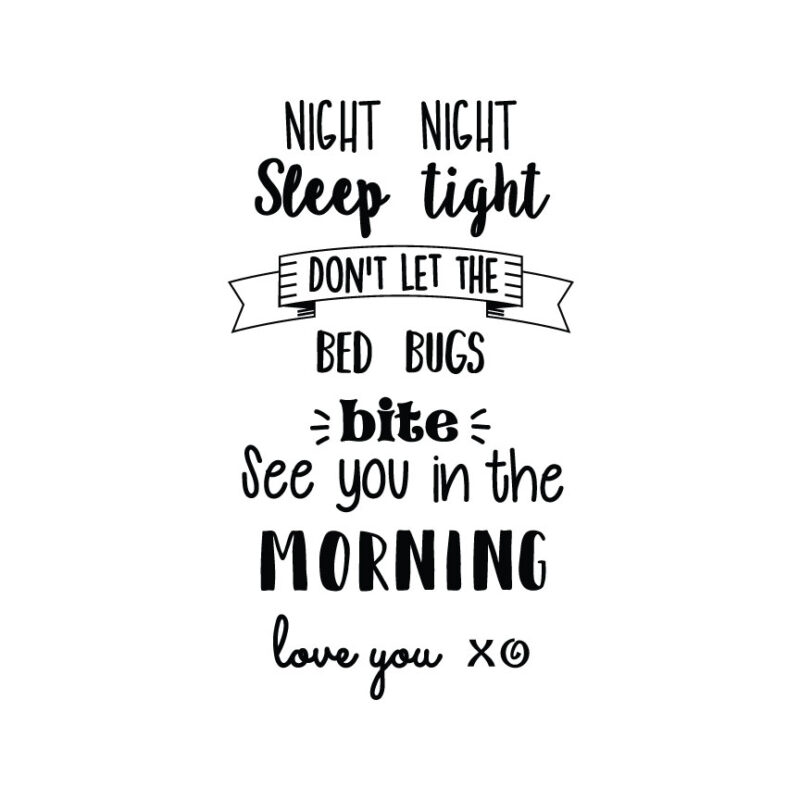 NIGHT NIGHT
Sleep tight
DON'T LET THE
BED BUGS
bite
See you in the
MORNING
love you XO